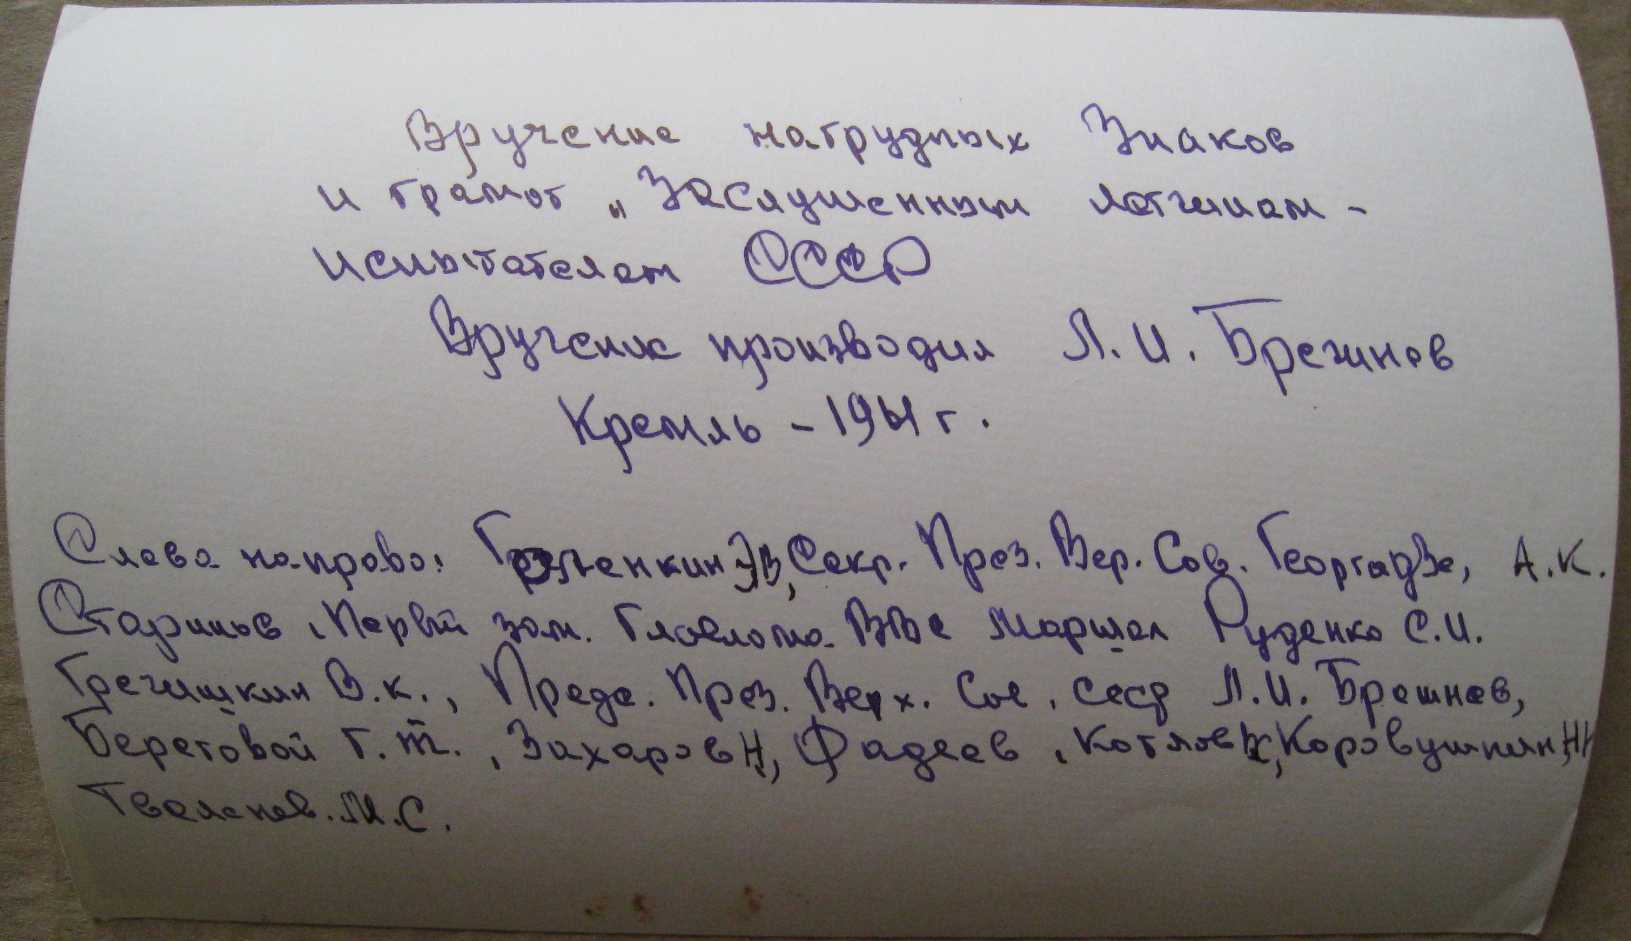 Вручение нагрудных Знаков
и грамот „Заслуженным летчикам -
испытателям СССР
Вручение производил Л.И. Брежнев
Кремль - 1961 г.
Слева направо: ЭВ, Секр. През. Вер. Сов. Георгадзе, А.К.
Стариков, Первый зам. Главкома ВВС Маршал Руденко С.И.
Гречишкин В.К., Предс. През. Верх. Сов. СССР Л.И. Брежнев,
Береговой Г.Т., Захаров Н, Фадеев, Котлов К, Коровушкин НН
Твеленев. М.С.